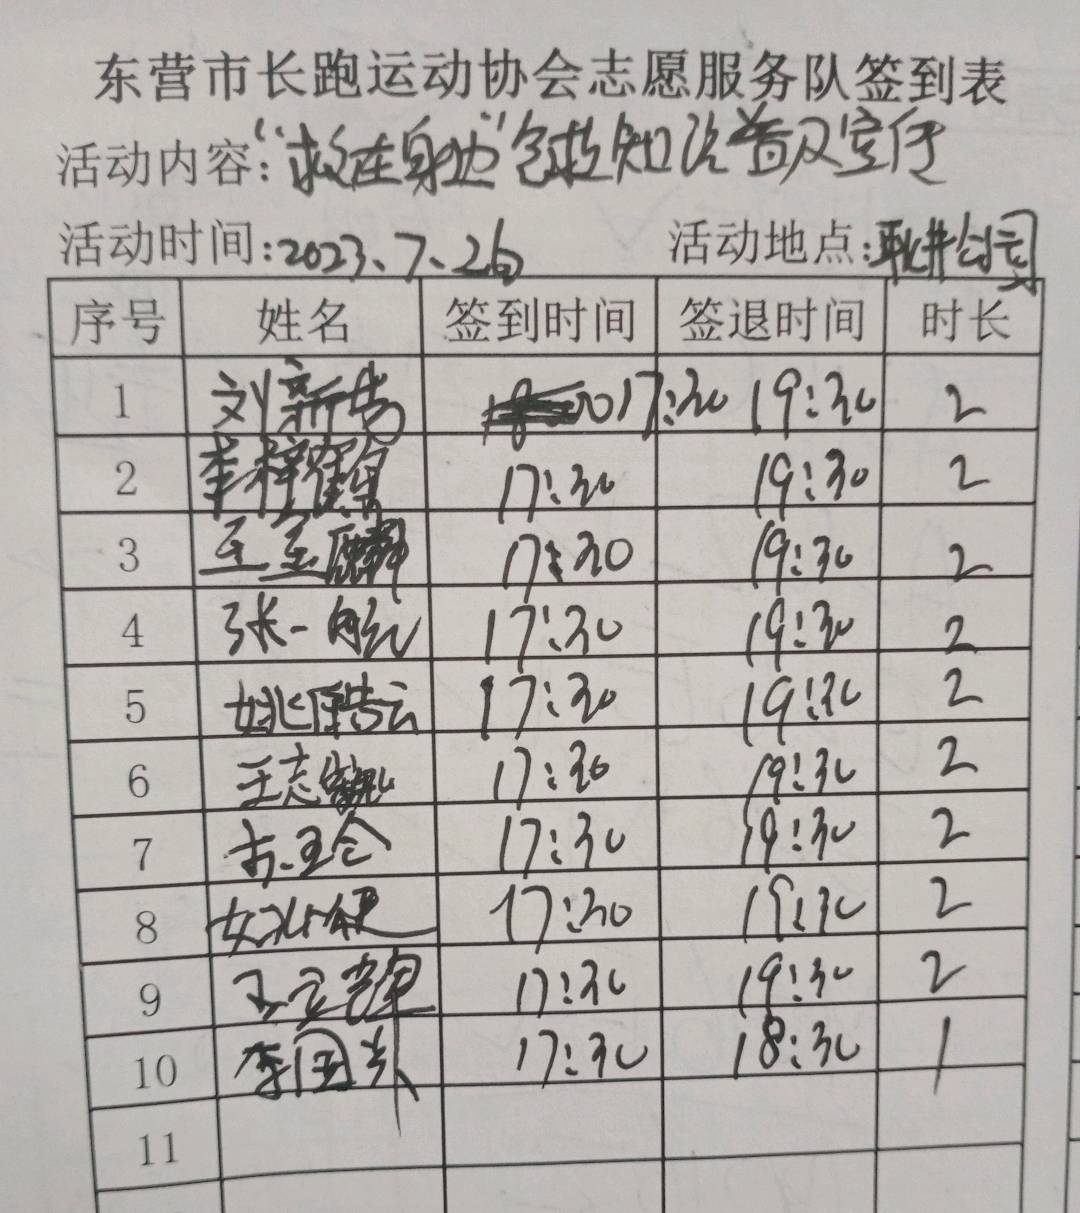 东营市长跑运动协会志愿服务队签到表
活动内容:“救在身边”急救知识普及宣传
活动时间:2023.7.26日 活动地点:耿井公园
序号 姓名 签到时间 签退时间 时长
1 刘新 17:30 19:30 2
2 李梓 17:30 19:30 2
3 王玉麟 17:30 19:30 2
4 张一 17:30 19:30 2
5 姚皓云 17:30 19:30 2
6 王志 17:30 19:30 2
7 17:30 19:30 2
8 姚 17:30 19:30 2
9 王立辉 17:30 19:30 2
10 李国 17:30 18:30 1
11